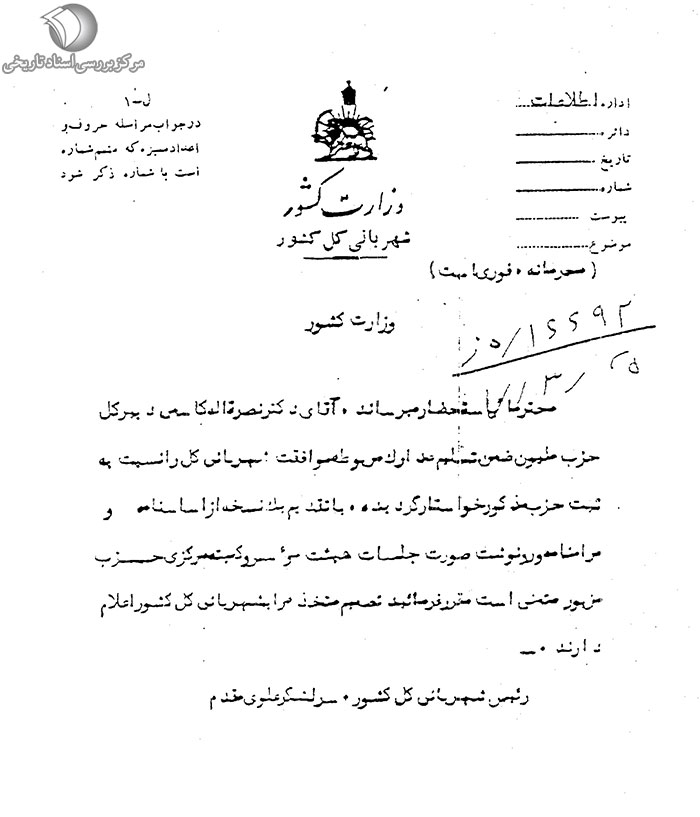 مرکز بررسی اسناد تاریخی
ل-۱
در جواب مراسله حروف و
اعداد سبزه که منضم شماره
است با شماره ذکر شود
وزارت کشور
شهربانی کل کشور
اداره اطلاعات
دائره
تاریخ
شماره
پیوست
موضوع
(محرمانه ۰ فوری است)
وزارت کشور
محترما باستحضار میرساند ۰ آقای دکتر نصرة اله کاسمی دبیرکل
حزب ملیون ضمن تسلیم مدارک مربوطه موافقت شهربانی کل را نسبت به
ثبت حزب مذکور خواستار گردیده ۰ با تقدیم یک نسخه از اساسنامه و
مرامنامه و رونوشت صورت جلسات هیئت مؤسس و کمیته مرکزی حزب
مزبور متمنی است مقرر فرمائید تصمیم متخذه را بشهربانی کل کشور اعلام
دارند ۰ــ
رئیس شهربانی کل کشور ۰ سرلشکر علوی مقدم